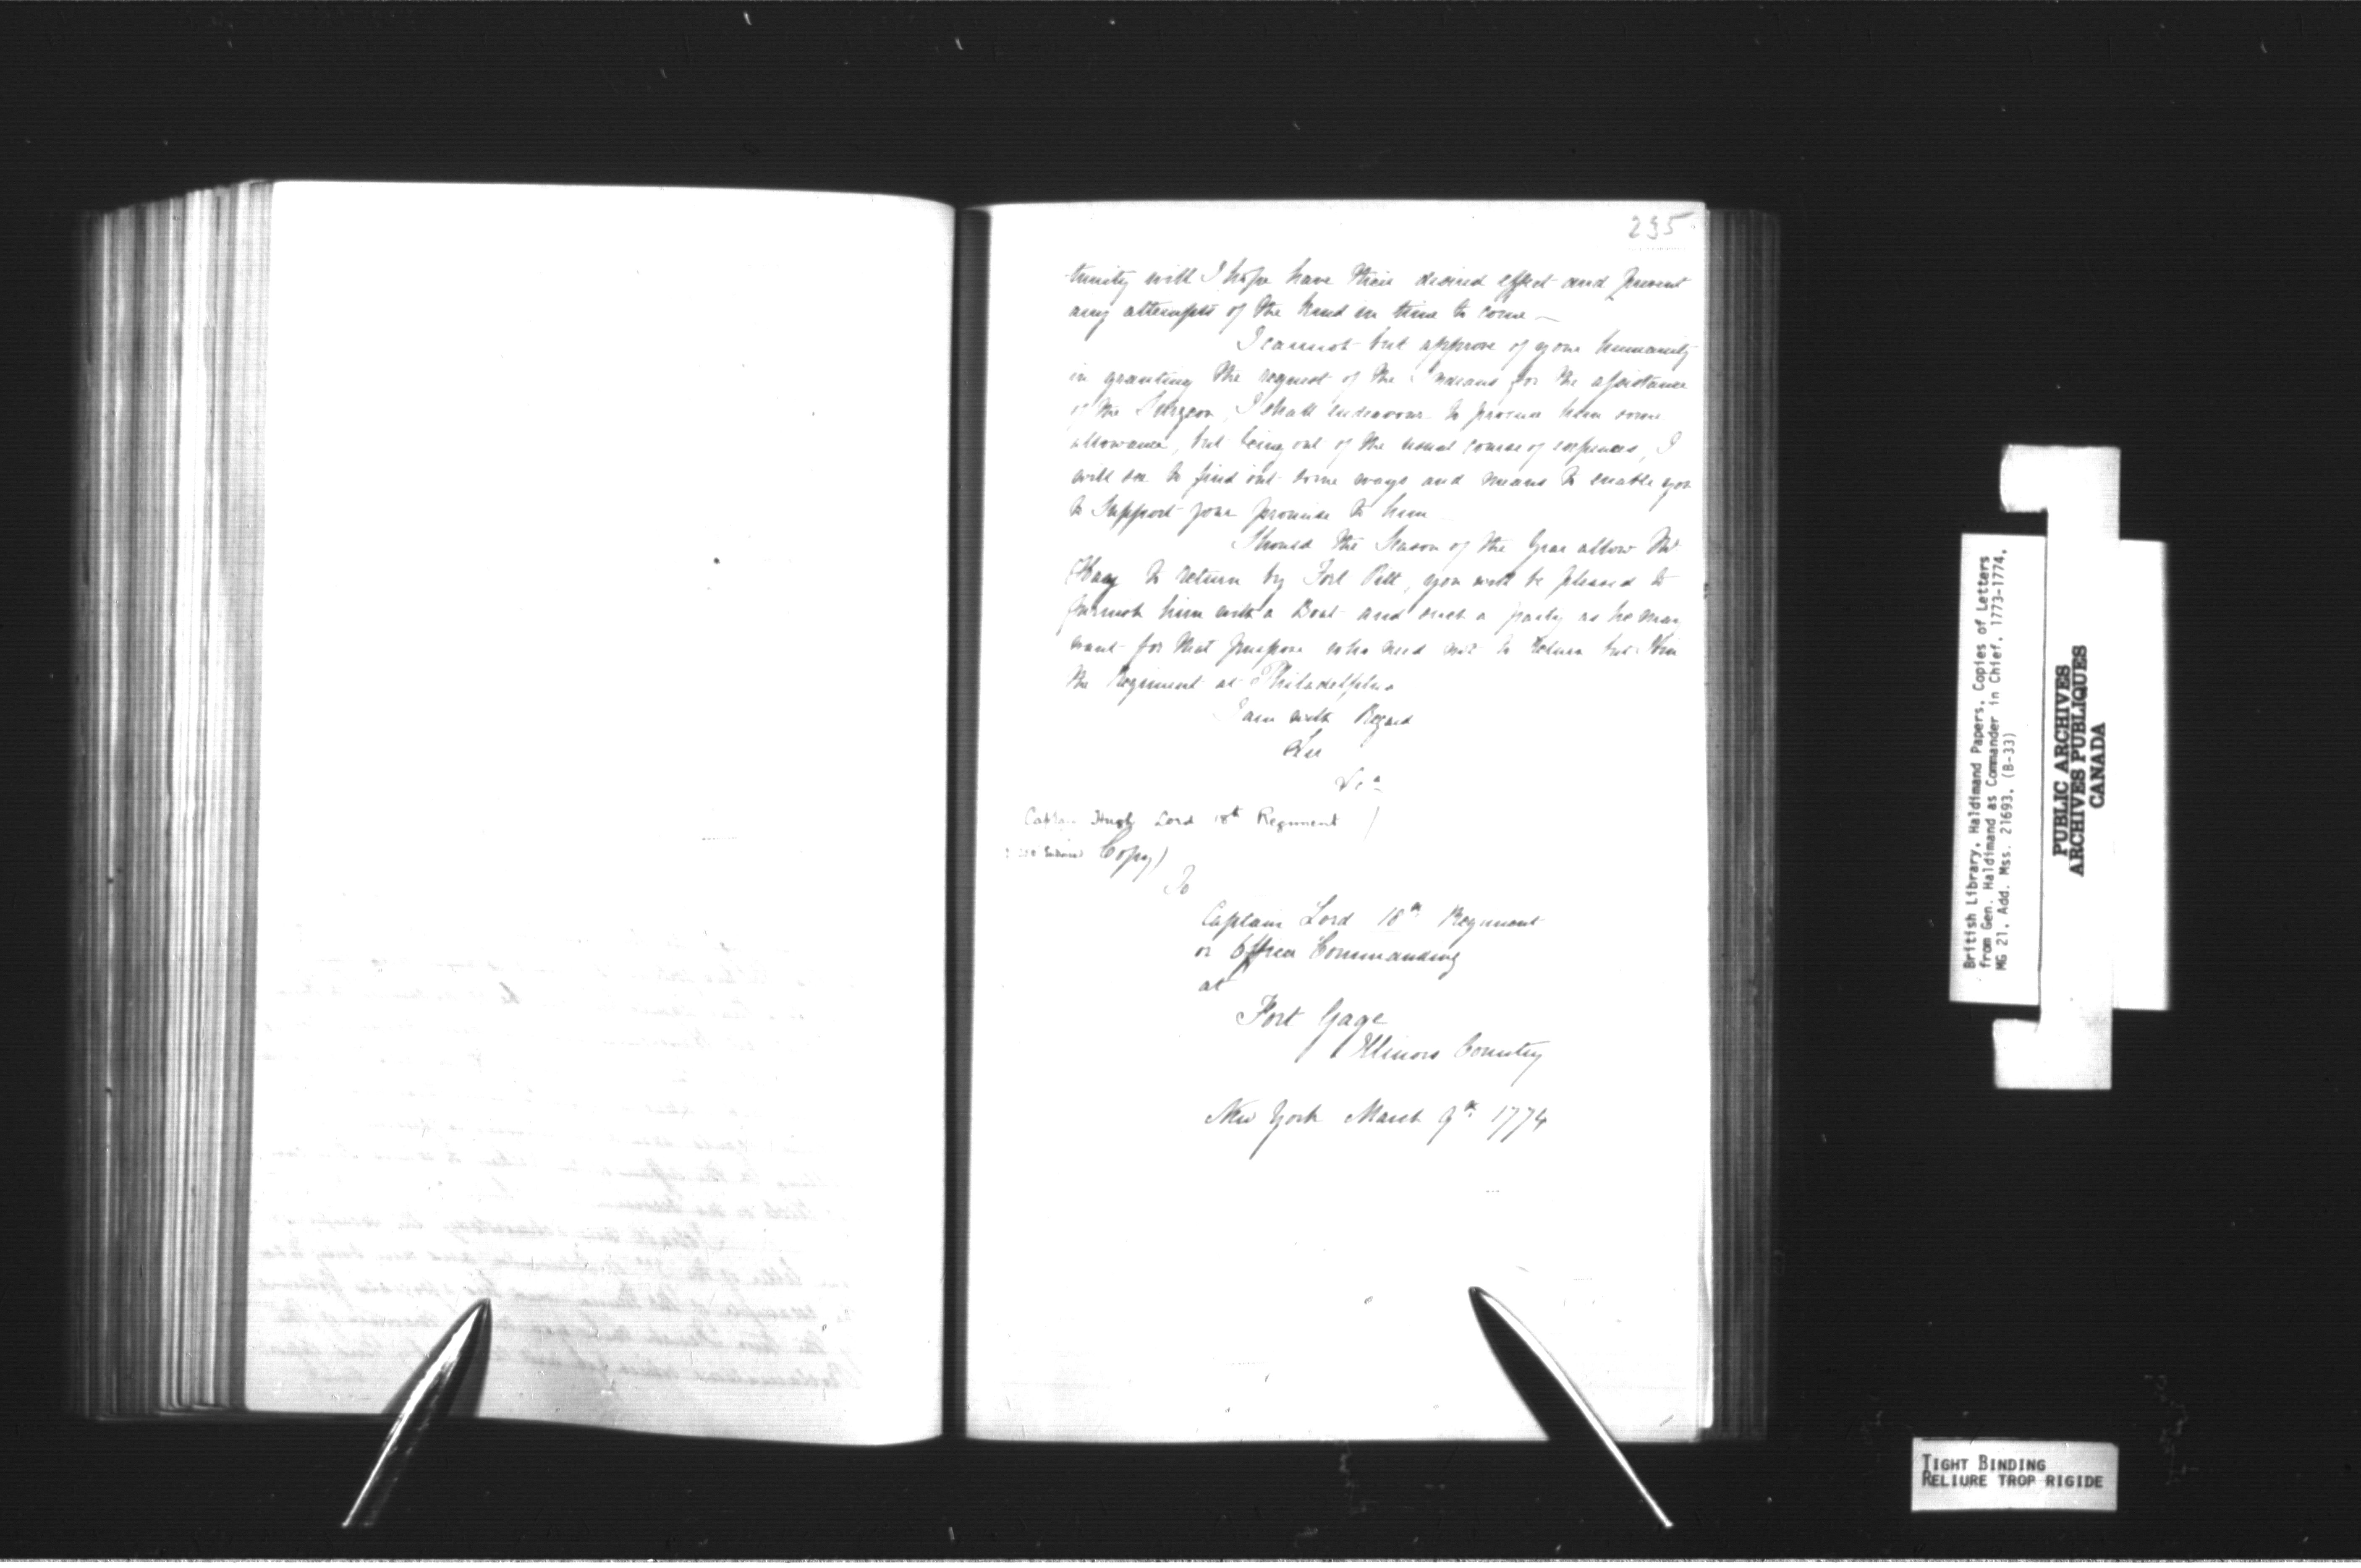 235
-tunity will I hope have their desired effect and prevent
any attempts of the kind in time to come —
I cannot but approve of your humanity
in granting the request of the Indians for the assistance
of the Surgeon, I shall endeavour to procure him some
allowance, but being out of the usual course of expences, I
will see to find out some ways and means to enable you
to Support your promise to him —
Should the Season of the Year allow Mr
Hay to return by Fort Pitt, you will be pleased to
furnish him with a Boat and such a party as he may
want for that purpose who need not to return but join
the Regiment at Philadelphia
I am with Regard
Sir
&ca
Captain Hugh Lord 18th Regiment )
Copy)
To
Captain Lord 18th Regiment
or Officer Commanding
at
Fort Gage
Illinois Country
New York March 9th 1774
British Library, Haldimand Papers, Copies of Letters
from Gen. Haldimand as Commander in Chief, 1773-1774,
MG 21, Add. Mss. 21693, (B-33)
PUBLIC ARCHIVES
ARCHIVES PUBLIQUES
CANADA
TIGHT BINDING
RELIURE TROP RIGIDE